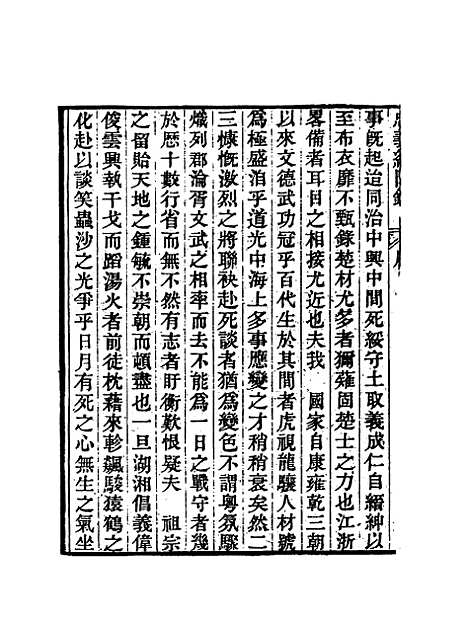 事旣起迨同治中興中間死綏守土取義成仁自縉紳以
至布衣靡不甄錄楚材尤多者獮薙固楚士之力也江浙
畧備者耳目之相接尤近也夫我 國家自康雍乾三朝
以來文德武功冠乎百代生於其間者虎視龍驤人材號
為極盛洎乎道光中海上多事應變之才稍稍衰矣然二
三慷慨激烈之將聯袂赴死談者猶為變色不謂粵氛驟
熾列郡淪胥文武之相率而去不能為一日之戰守者幾
於歷十數行省而無不然有志者盱衡歎恨疑夫 祖宗
之留貽天地之鍾毓不崇朝而頓盡也一旦湖湘倡義偉
俊雲興執干戈而蹈湯火者前徒枕藉來軫飆駿猿鶴之
化赴以談笑蟲沙之光爭乎日月有死之心無生之氣坐